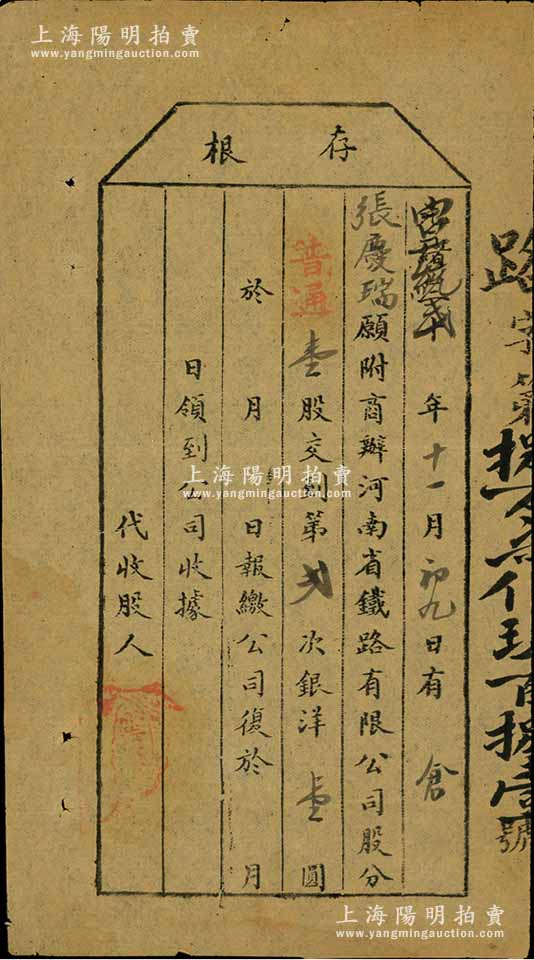 上海陽明拍賣
www.yangmingauction.com
存根
年十一月初九日有 倉
張慶瑞願附商辦河南省鐵路有限公司股分
普通壹股交到第弍次銀洋壹圓
於 月 日報繳公司復於 月
日領到公司收據
代收股人
路字第 號
上海陽明拍賣
www.yangmingauction.com
上海陽明拍賣
www.yangmingauction.com